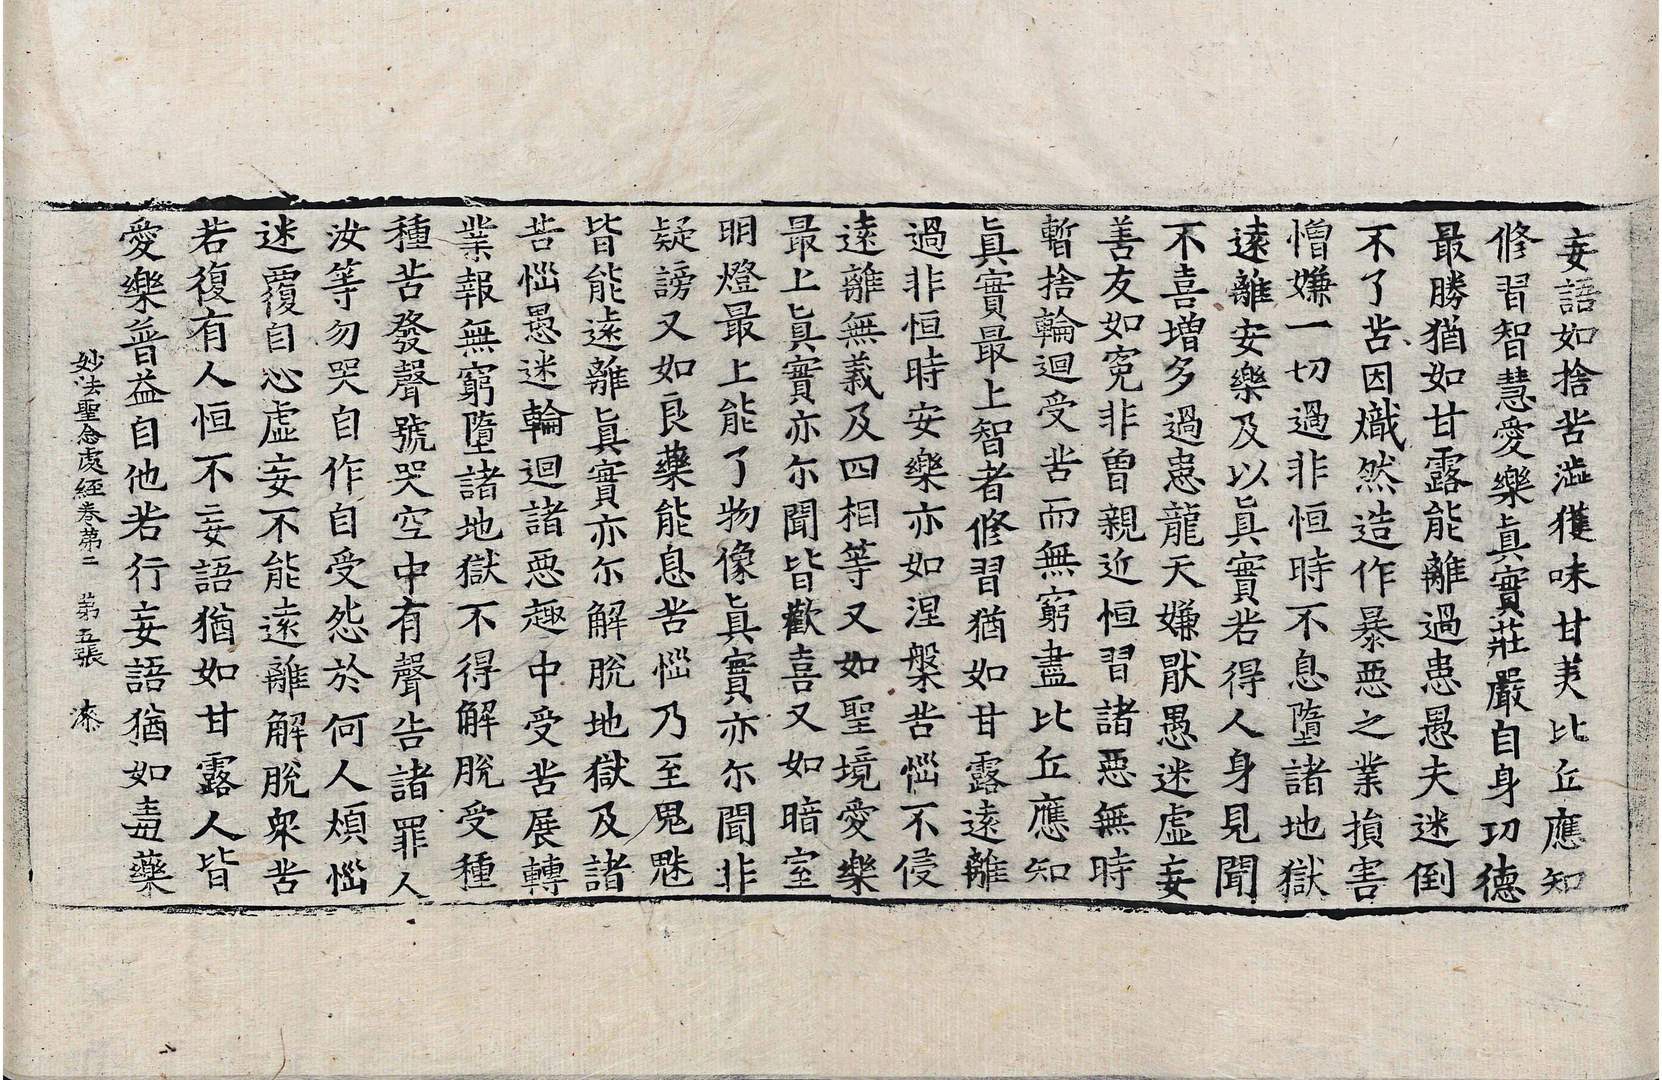 妄語如捨苦澁獲味甘美比丘應知
修習智慧愛樂眞實莊嚴自身功德
最勝猶如甘露能離過患愚夫迷倒
不了苦因熾然造作暴惡之業損害
憎嫌一切過非恒時不息墮諸地獄
遠離安樂及以眞實若得人身見聞
不喜增多過患龍天嫌猒愚迷虛妄
善友如寃非曾親近恒習諸惡無時
暫捨輪迴受苦而無窮盡比丘應知
眞實最上智者修習猶如甘露遠離
過非恒時安樂亦如涅槃苦惱不侵
遠離無義及四相等又如聖境愛樂
最上眞實亦尒聞皆歡喜又如暗室
明燈最上能了物像眞實亦尒聞非
疑謗又如良藥能息苦惱乃至鬼魅
皆能遠離眞實亦尒解脫地獄及諸
苦惱愚迷輪迴諸惡趣中受苦展轉
業報無窮墮諸地獄不得解脫受種
種苦發聲號哭空中有聲告諸罪人
汝等勿哭自作自受怨於何人煩惱
迷覆自心虛妄不能遠離解脫衆苦
若復有人恒不妄語猶如甘露人皆
愛樂普益自他若行妄語猶如毒藥
妙法聖念處經卷第二 第五張 漆